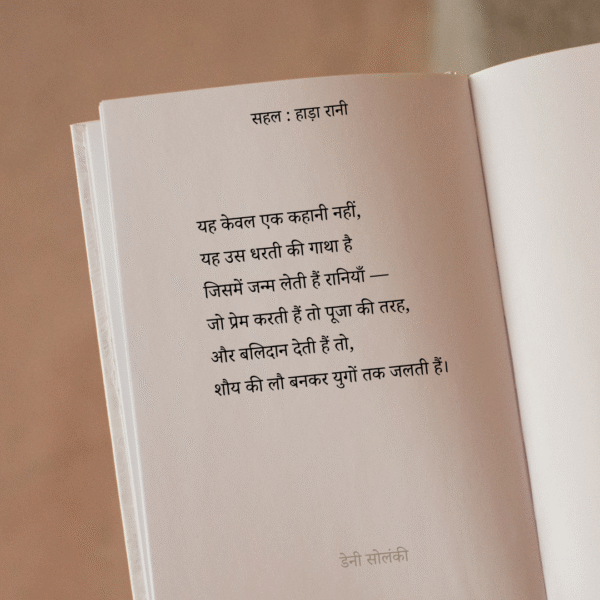 सहल : हाड़ा रानी
यह केवल एक कहानी नहीं,
यह उस धरती की गाथा है
जिसमें जन्म लेती हैं रानियाँ —
जो प्रेम करती हैं तो पूजा की तरह,
और बलिदान देती हैं तो,
शौय की लौ बनकर युगों तक जलती हैं।
डेनी सोलंकी